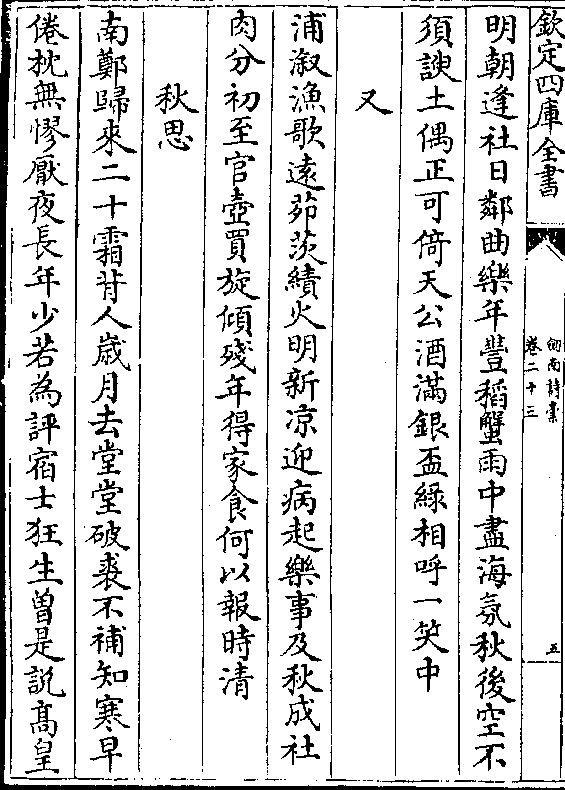 欽定四庫全書
劒南詩稾
卷二十三
五
明朝逢社日鄰曲樂年豐稻蟹雨中盡海氛秋後空不
須諛土偶正可倚天公酒滿銀盃綠相呼一笑中
又
浦溆漁歌遠茆茨績火明新凉迎病起樂事及秋成社
肉分初至官壺買旋傾殘年得家食何以報時清
秋思
南鄭歸來二十霜背人歲月去堂堂破裘不補知寒早
倦枕無憀厭夜長年少若為評宿士狂生曽是説髙皇